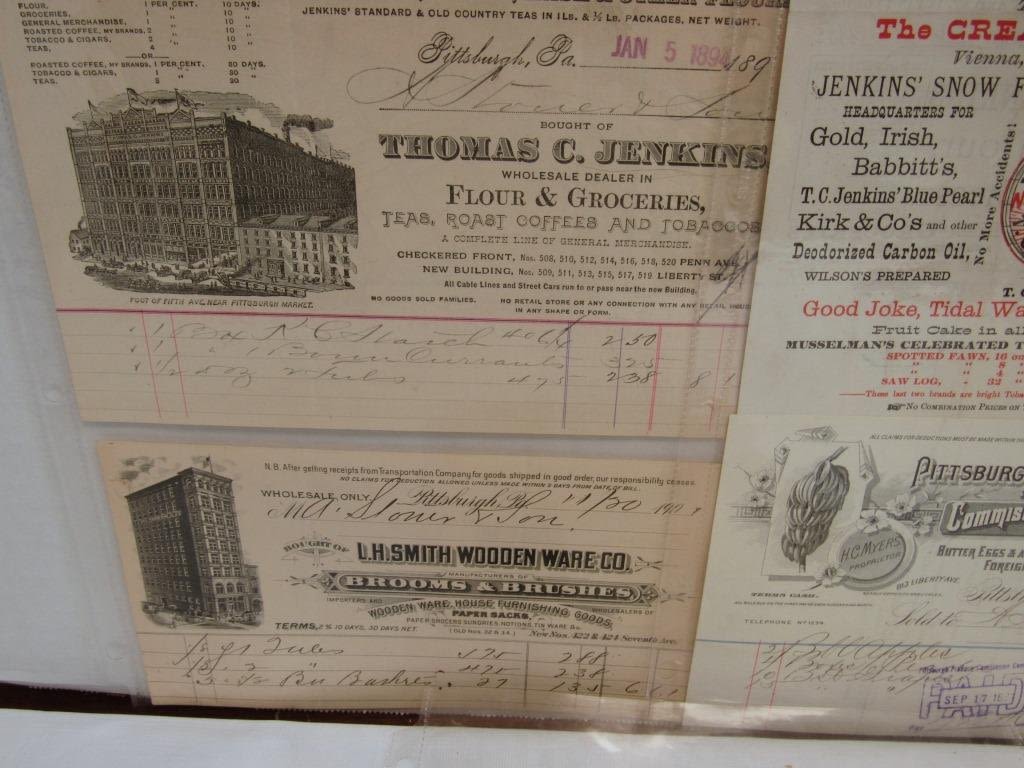 FLOUR, 1 PER CENT. 10 DAYS.
GROCERIES, 1 " 10 "
GENERAL MERCHANDISE, 2 " 10 "
ROASTED COFFEE, MY BRANDS, 2 " 10 "
TOBACCO & CIGARS, 2 " 10 "
TEAS, 4 " 10 "
—OR—
ROASTED COFFEE, MY BRANDS, 1 PER CENT. 30 DAYS.
TOBACCO & CIGARS, 1 " 30 "
TEAS, 3 " 30 "
JENKINS' STANDARD & OLD COUNTRY TEAS IN 1LB. & ½ LB. PACKAGES, NET WEIGHT.
Pittsburgh, Pa. JAN 5 1894 189
A Stoner & Son
BOUGHT OF
THOMAS C. JENKINS
WHOLESALE DEALER IN
FLOUR & GROCERIES,
TEAS, ROAST COFFEES AND TOBACCOS
A COMPLETE LINE OF GENERAL MERCHANDISE.
CHECKERED FRONT, Nos. 508, 510, 512, 514, 516, 518, 520 PENN AVE.
NEW BUILDING, Nos. 509, 511, 513, 515, 517, 519 LIBERTY ST.
All Cable Lines and Street Cars run to or pass near the new Building.
NO GOODS SOLD FAMILIES. NO RETAIL STORE OR ANY CONNECTION WITH ANY RETAIL HOUSE
IN ANY SHAPE OR FORM.
FOOT OF FIFTH AVE. NEAR PITTSBURGH MARKET.
1 Box N C Starch 40 6¼ 2 50
1 " Currants 3 25
1/2 doz 2 Tubs 4 75 2 38 8 1
N.B. After getting receipts from Transportation Company for goods shipped in good order, our responsibility ceases.
NO CLAIMS FOR DEDUCTION ALLOWED UNLESS MADE WITHIN 5 DAYS FROM DATE OF BILL.
WHOLESALE ONLY. Pittsburgh, Pa. 11/30 190
M A Stoner & Son
BOUGHT OF L.H. SMITH WOODEN WARE CO.
MANUFACTURERS OF
BROOMS & BRUSHES,
IMPORTERS AND WHOLESALERS OF
WOODEN WARE, HOUSE FURNISHING GOODS,
PAPER SACKS,
PAPER, GROCERS SUNDRIES, NOTIONS, TIN WARE &c
TERMS, 2% 10 DAYS, 30 DAYS NET. (OLD Nos. 32 & 34.) New Nos. 422 & 424 Seventh Ave.
1/2 Tubs 5 75 2 88
1/2 " 4 75 2 38
Bu Baskets 27 1 35 6 6 1
The CREA
Vienna,
JENKINS' SNOW F
HEADQUARTERS FOR
Gold, Irish,
Babbitt's,
T.C. Jenkins' Blue Pearl
Kirk & Co's and other
Deodorized Carbon Oil,
WILSON'S PREPARED
No More Accidents!
T. C
Good Joke, Tidal Wa
Fruit Cake in all
MUSSELMAN'S CELEBRATED T
SPOTTED FAWN, 16 ou
" " 8 "
" " 4 "
SAW LOG, - 32 "
—These last two brands are bright Toba
No COMBINATION PRICES ON
ALL CLAIMS FOR DEDUCTIONS MUST BE MADE WITHIN
PITTSBURG
Commis
BUTTER EGGS & 
FOREIG
H.C. MYERS
PROPRIETOR
813 LIBERTY AVE.
TERMS CASH.
TELEPHONE No 1894.
Pittsb
Sold to
Bbl Apples
PAID
SEP 17 18